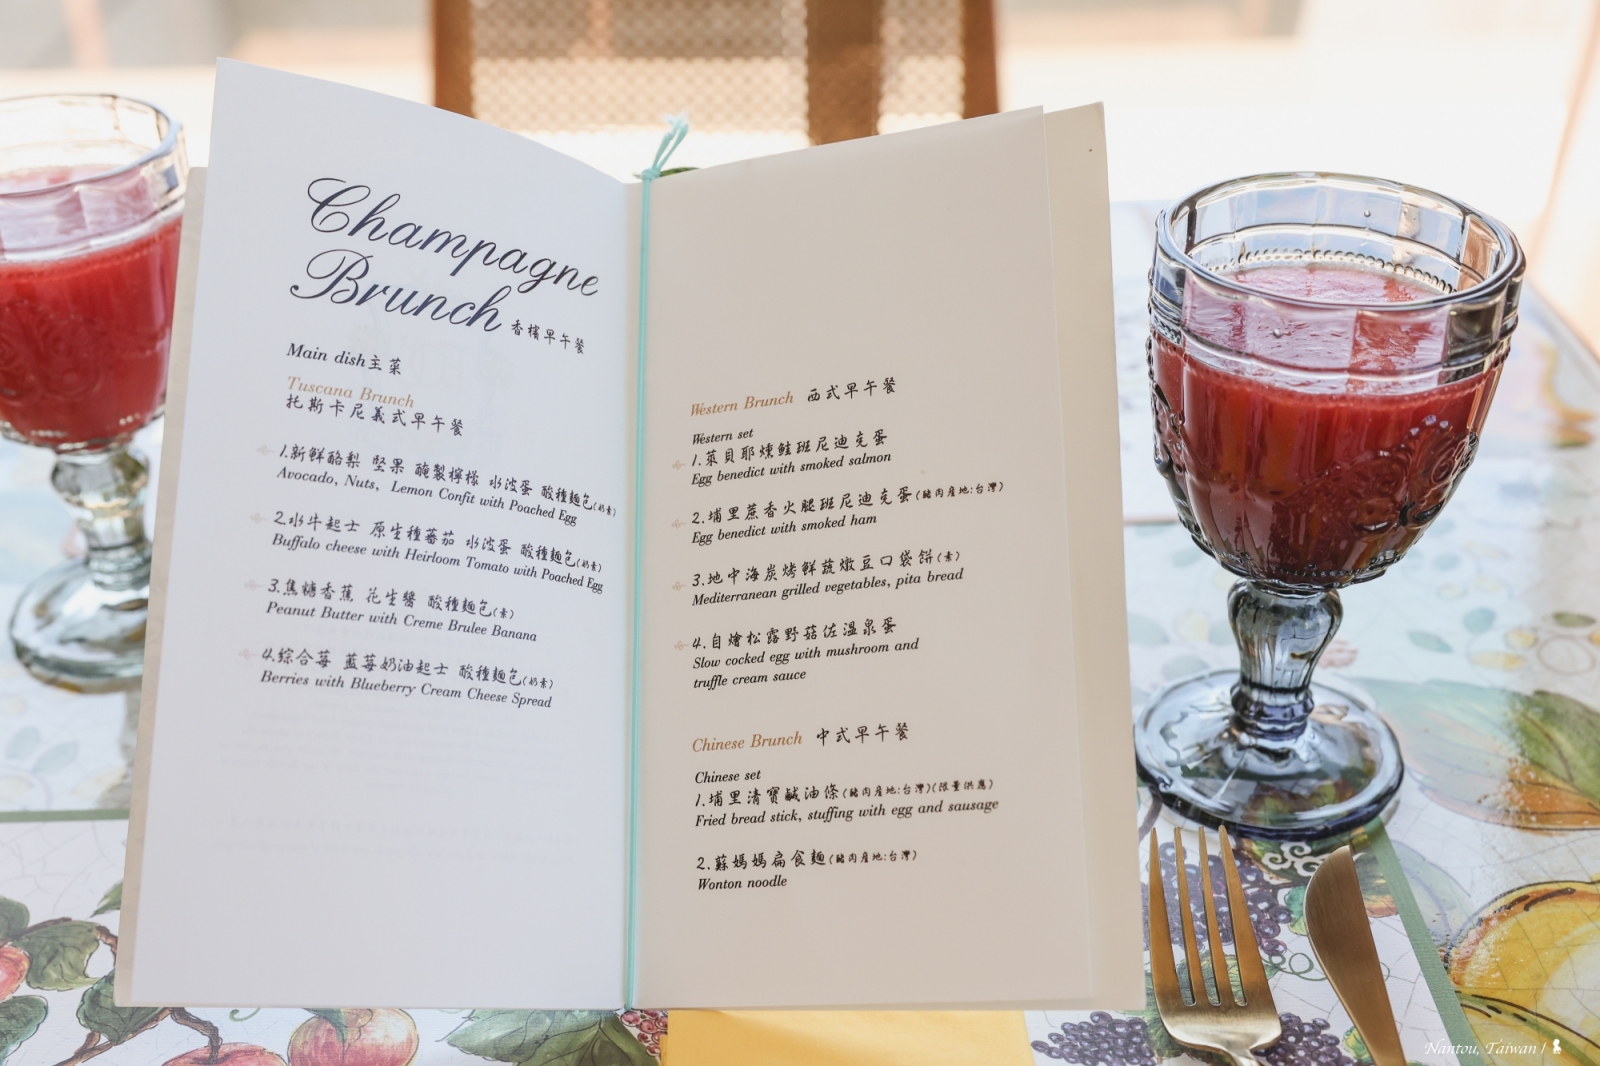 Champagne
Brunch 香檳早午餐
Main dish主菜
Tuscana Brunch
托斯卡尼義式早午餐
1.新鮮酪梨 堅果 醃製檸檬 水波蛋 酸種麵包(奶素)
Avocado, Nuts, Lemon Confit with Poached Egg
2.水牛起士 原生種蕃茄 水波蛋 酸種麵包(奶素)
Buffalo cheese with Heirloom Tomato with Poached Egg
3.焦糖香蕉 花生醬 酸種麵包(素)
Peanut Butter with Creme Brulee Banana
4.綜合莓 藍莓奶油起士 酸種麵包(奶素)
Berries with Blueberry Cream Cheese Spread
Western Brunch 西式早午餐
Western set
1.萊貝耶燻鮭班尼迪克蛋
Egg benedict with smoked salmon
2.埔里蔗香火腿班尼迪克蛋(豬肉產地:台灣)
Egg benedict with smoked ham
3.地中海炭烤鮮蔬燉豆口袋餅(素)
Mediterranean grilled vegetables, pita bread
4.自燴松露野菇佐溫泉蛋
Slow cocked egg with mushroom and
truffle cream sauce
Chinese Brunch 中式早午餐
Chinese set
1.埔里清寶鹹油條(豬肉產地:台灣)(限量供應)
Fried bread stick, stuffing with egg and sausage
2.蘇媽媽扁食麵(豬肉產地:台灣)
Wonton noodle
Nantou, Taiwan /